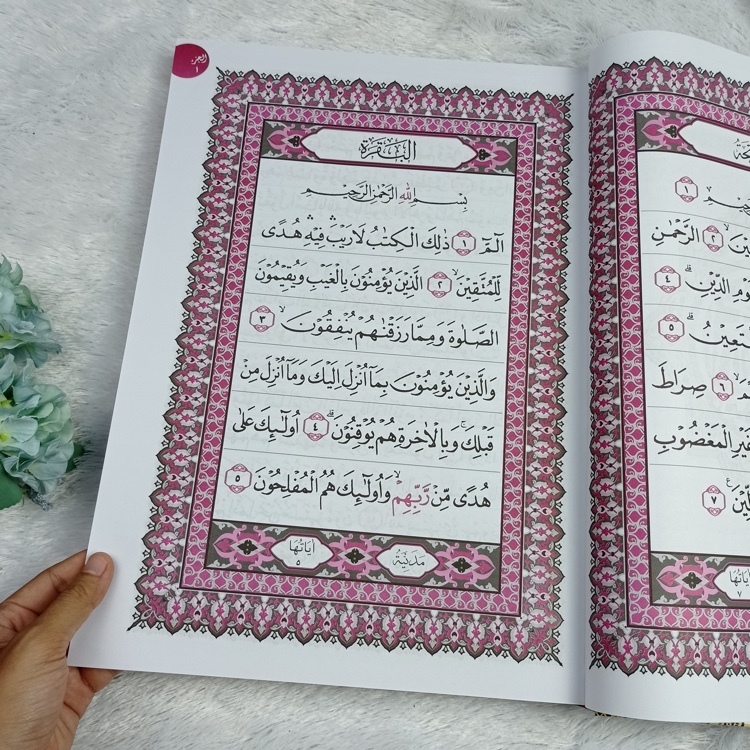 الجزء
١
البقرة
بِسْمِ اللّٰهِ الرَّحْمٰنِ الرَّحِيْمِ
الۤمّۤ ۝١ ذٰلِكَ الْكِتٰبُ لَا رَيْبَ ۛ فِيْهِ ۛ هُدًى
لِّلْمُتَّقِيْنَ ۙ ۝٢ الَّذِيْنَ يُؤْمِنُوْنَ بِالْغَيْبِ وَيُقِيْمُوْنَ
الصَّلٰوةَ وَمِمَّا رَزَقْنٰهُمْ يُنْفِقُوْنَ ۙ ۝٣
وَالَّذِيْنَ يُؤْمِنُوْنَ بِمَآ اُنْزِلَ اِلَيْكَ وَمَآ اُنْزِلَ مِنْ
قَبْلِكَ ۚ وَبِالْاٰخِرَةِ هُمْ يُوْقِنُوْنَ ۗ ۝٤ اُولٰۤىِٕكَ عَلٰى
هُدًى مِّنْ رَّبِّهِمْ ۙ وَاُولٰۤىِٕكَ هُمُ الْمُفْلِحُوْنَ ۝٥
مدنية
اياتها
٥
١
٢ الرَّحْمٰنِ
الدِّيْنِ ۗ ٤
٥
٦ صِرَاطَ
غَيْرِ الْمَغْضُوْبِ
٧
اياتها
٧